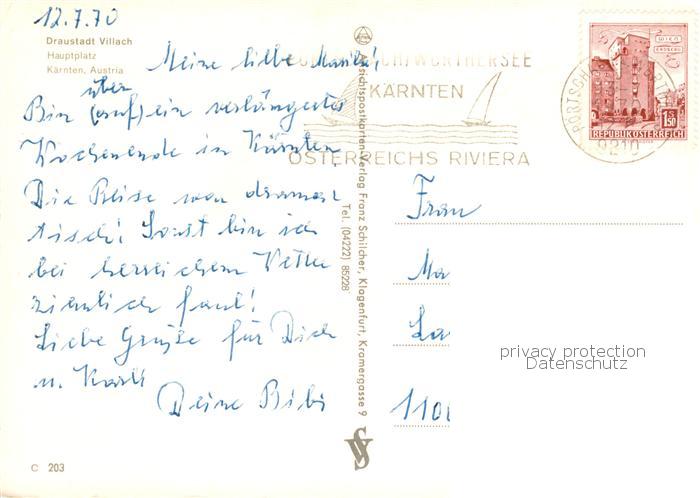 12.7.70
Draustadt Villach
Hauptplatz
Kärnten, Austria
Meine liebe
über
Bin (auf) ein verlängertes
Wochenende in Kärnten.
Die Reise war dramat
tisch! Sonst bin ich
bei herrlichem Wetter
ziemlich faul!
Liebe Grüße für Dich
u. Karli
Deine Bibi
C 203
Ansichtspostkarten-Verlag Franz Schilcher, Klagenfurt, Kramergasse 9
Tel. (04222) 85228
WÖRTHERSEE
KÄRNTEN
ÖSTERREICHS RIVIERA
PÖRTSCH
9210
WIEN
ERDBERG
S 1.50
REPUBLIK ÖSTERREICH
Frau
Ma
La
110
privacy protection
Datenschutz